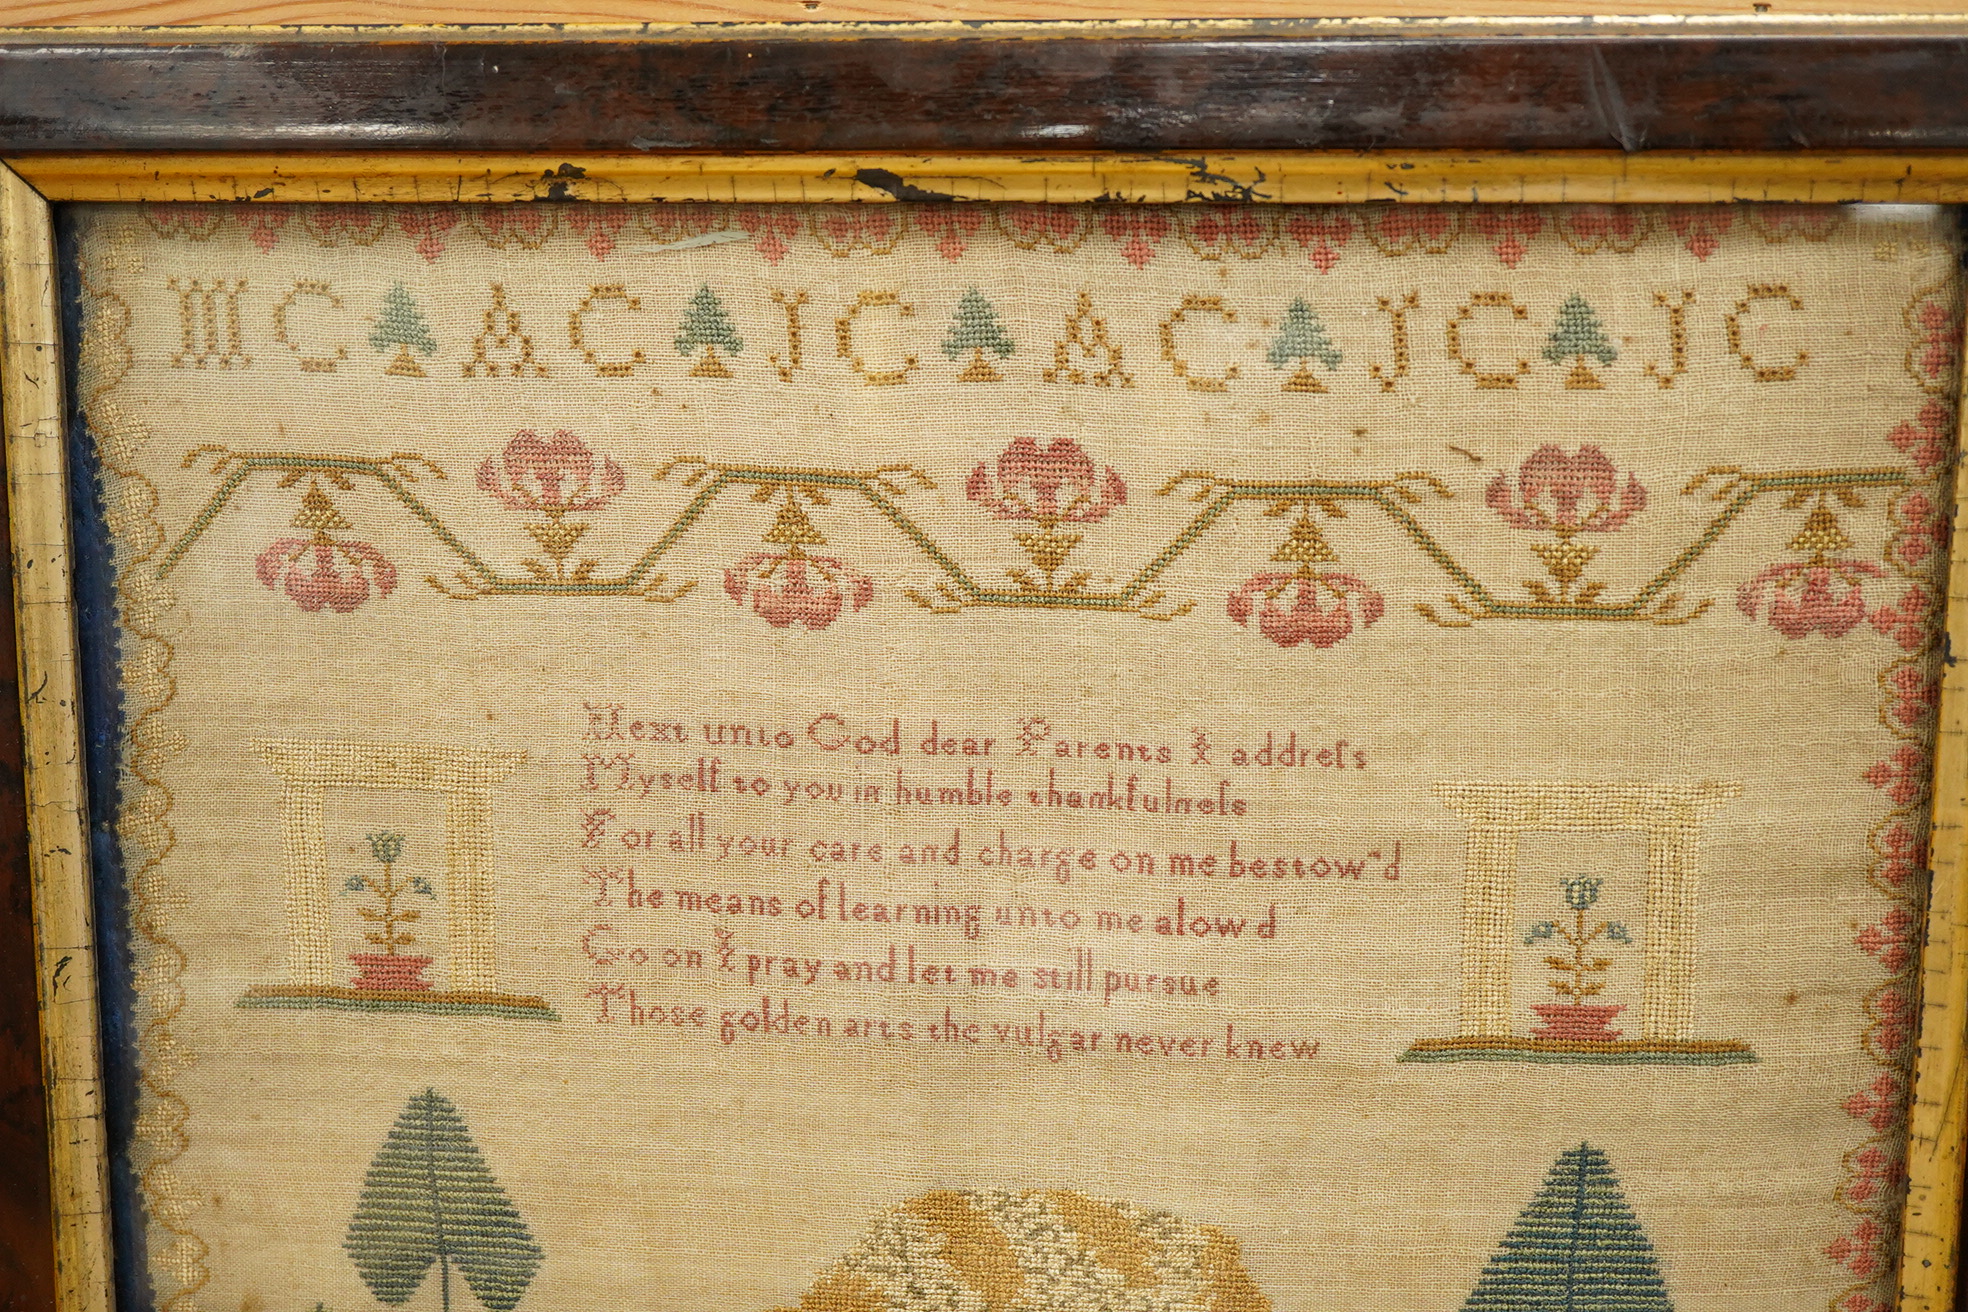 M C A C J C A C J C J C
Next unto God dear Parents I addreſs
Myself to you in humble thankfulneſs
For all your care and charge on me bestow'd
The means of learning unto me alow d
Go on I pray and let me still pursue
Those golden arts the vulgar never knew